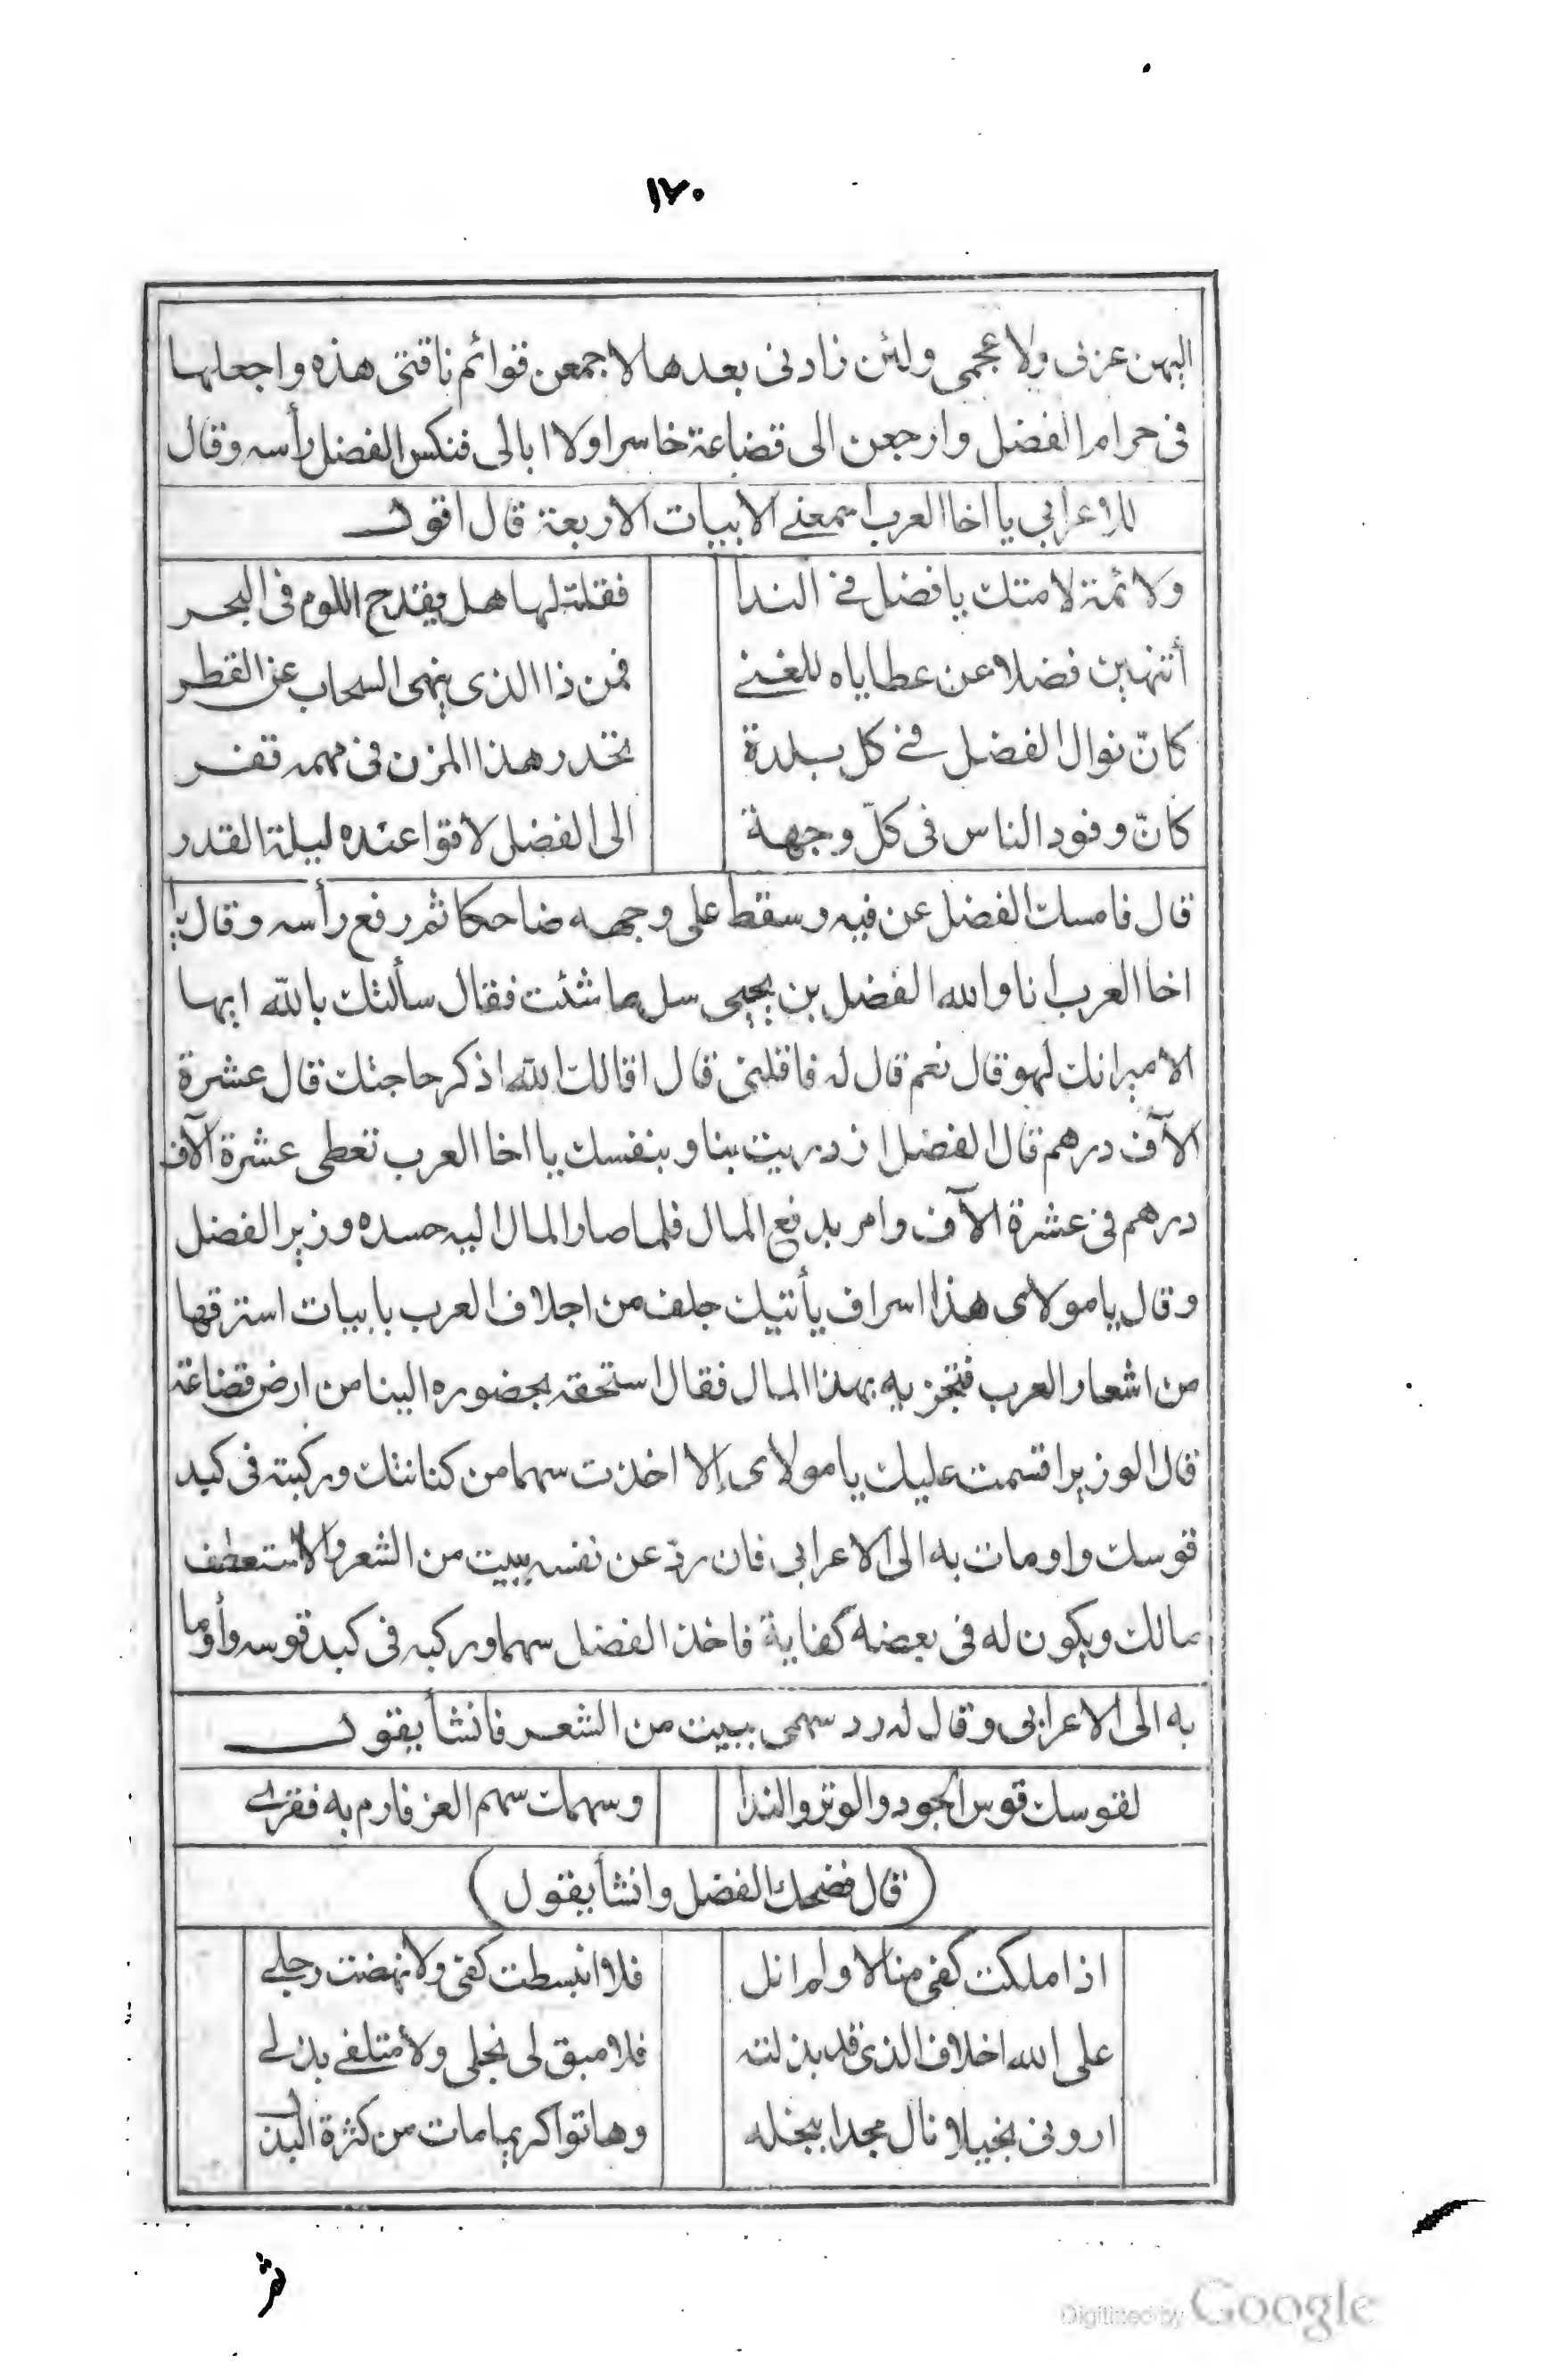 ١٧٠
اليهن عربى ولا عجمى ولئن زادنى بعدها لاجمعن قوائم ناقتى هذه واجعلها
فى حرام الفضل وارجعن الى قضاعة خاسرا ولا ابالى فنكس الفضل رأسه وقال
للاعرابي يا اخا العرب اسمعنے الابيات الاربعة قال اقول
ولائمة لامتك يا فضل فے الندا فقلت لها هل يقدح اللوم فى البحر
أتنهين فضلا عن عطاياه للغنے فمن ذا الذى ينهى السحاب عن القطر
كانّ نوال الفضل فے كل بلدة تحدر هذا المزن فى مهمه قفر
كانّ وفود الناس فى كلّ وجهة الى الفضل لاقوا عنده ليلة القدر
قال فامسك الفضل عن فيه وسقط على وجهه ضاحكا ثم رفع رأسه وقال يا
اخا العرب انا والله الفضل بن يحيى سل ما شئت فقال سألتك بالله ايها
الامير انك لهو قال نعم قال له فاقلنى قال اقالك الله اذكر حاجتك قال عشرة
الآف درهم قال الفضل ازدريت بنا وبنفسك يا اخا العرب تعطى عشرة الآف
درهم فى عشرة الآف وامر بدفع المال فلما صار المال اليه حسده وزير الفضل
وقال يا مولاى هذا اسراف يأتيك جلف من اجلاف العرب بابيات استرقها
من اشعار العرب فتجزيه بهذا المال فقال استحقه بحضوره الينا من ارض قضاعة
قال الوزير اقسمت عليك يا مولاى إلا اخذت سهما من كنانتك وركبته فى كبد
قوسك واومات به الى الاعرابى فان ردّ عن نفسه ببيت من الشعر والا استعطف
مالك ويكون له فى بعضه كفاية فاخذ الفضل سهما وركبه فى كبد قوسه وأوما
به الى الاعرابى وقال له رد سهمى ببيت من الشعر فانشأ يقول
لقوسك قوس الجود والوتر والندا وسهمك سهم العز فارم به فقرے
(قال فضحك الفضل وانشأ يقول)
اذا ملكت كفى منالا ولم انل فلا انبسطت كفى ولا نهضت رجلے
على الله اخلاف الذى قد بذلته فلا مبق لى بخلى ولا متلفے بذلے
ارونى بخيلا نال مجدا ببخله وهاتوا كريما مات من كثرة البذل
Digitized by Google